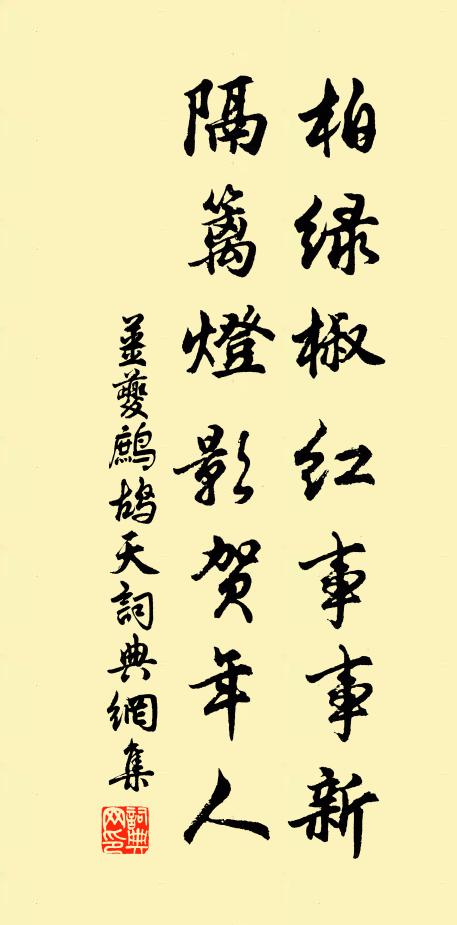 柏绿椒红事事新
隔篱燈影贺年人
姜夔鹧鸪天詞典網集
詞典网印